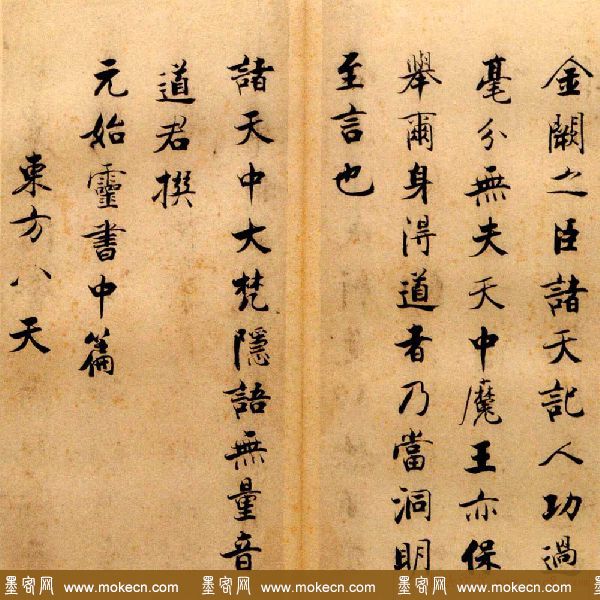 金闕之臣諸天記人功過
毫分無失天中魔王亦保
舉爾身得道者乃當洞明
至言也
諸天中大梵隱語無量音
道君撰
元始靈書中篇
東方八天
墨客网 www.mokecn.com 墨客网 www.mokecn.com 墨客网 www.mokecn.com